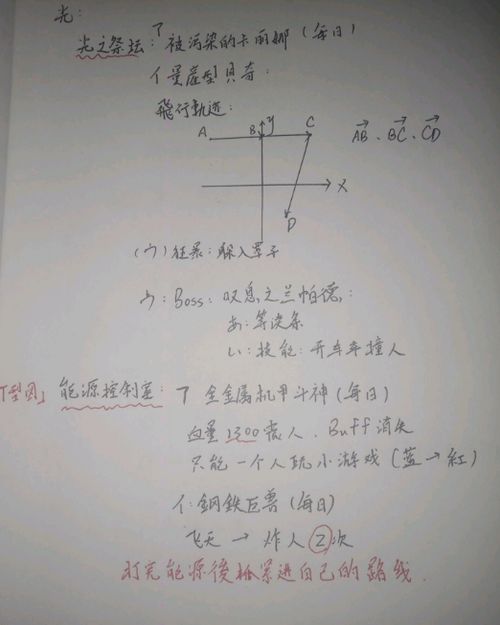 光:
光之祭坛: ア 被污染的卡丽娜 (每日)
イ 量産型貝奇:
飛行軌迹:
A B y C
AB、BC、CD
X
D
(ウ) 狂暴: 躲入罩子
ウ: Boss: 叹息之兰帕德:
あ: 等读条
い: 技能: 开车车撞人
「型図」能源控制室: ア 全金属机甲斗神 (每日)
血量2300 人、Buff消失
只能一个人玩小游戏 (蓝→紅)
イ: 鋼鉄巨兽 (每日)
飞天 → 炸人②次
打完能源後 进自己的路线.